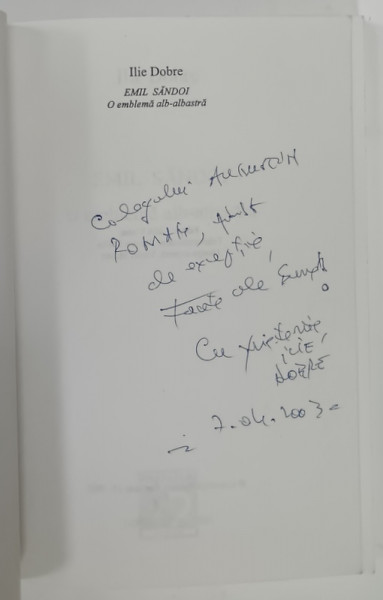 Ilie Dobre
EMIL SĂNDOI
O emblemă alb-albastră
Colegului AUGUSTIN
ROMAN,
de excepție,
Facte ale
Cu prietenie
ILIE
DOBRE
7.04.2003